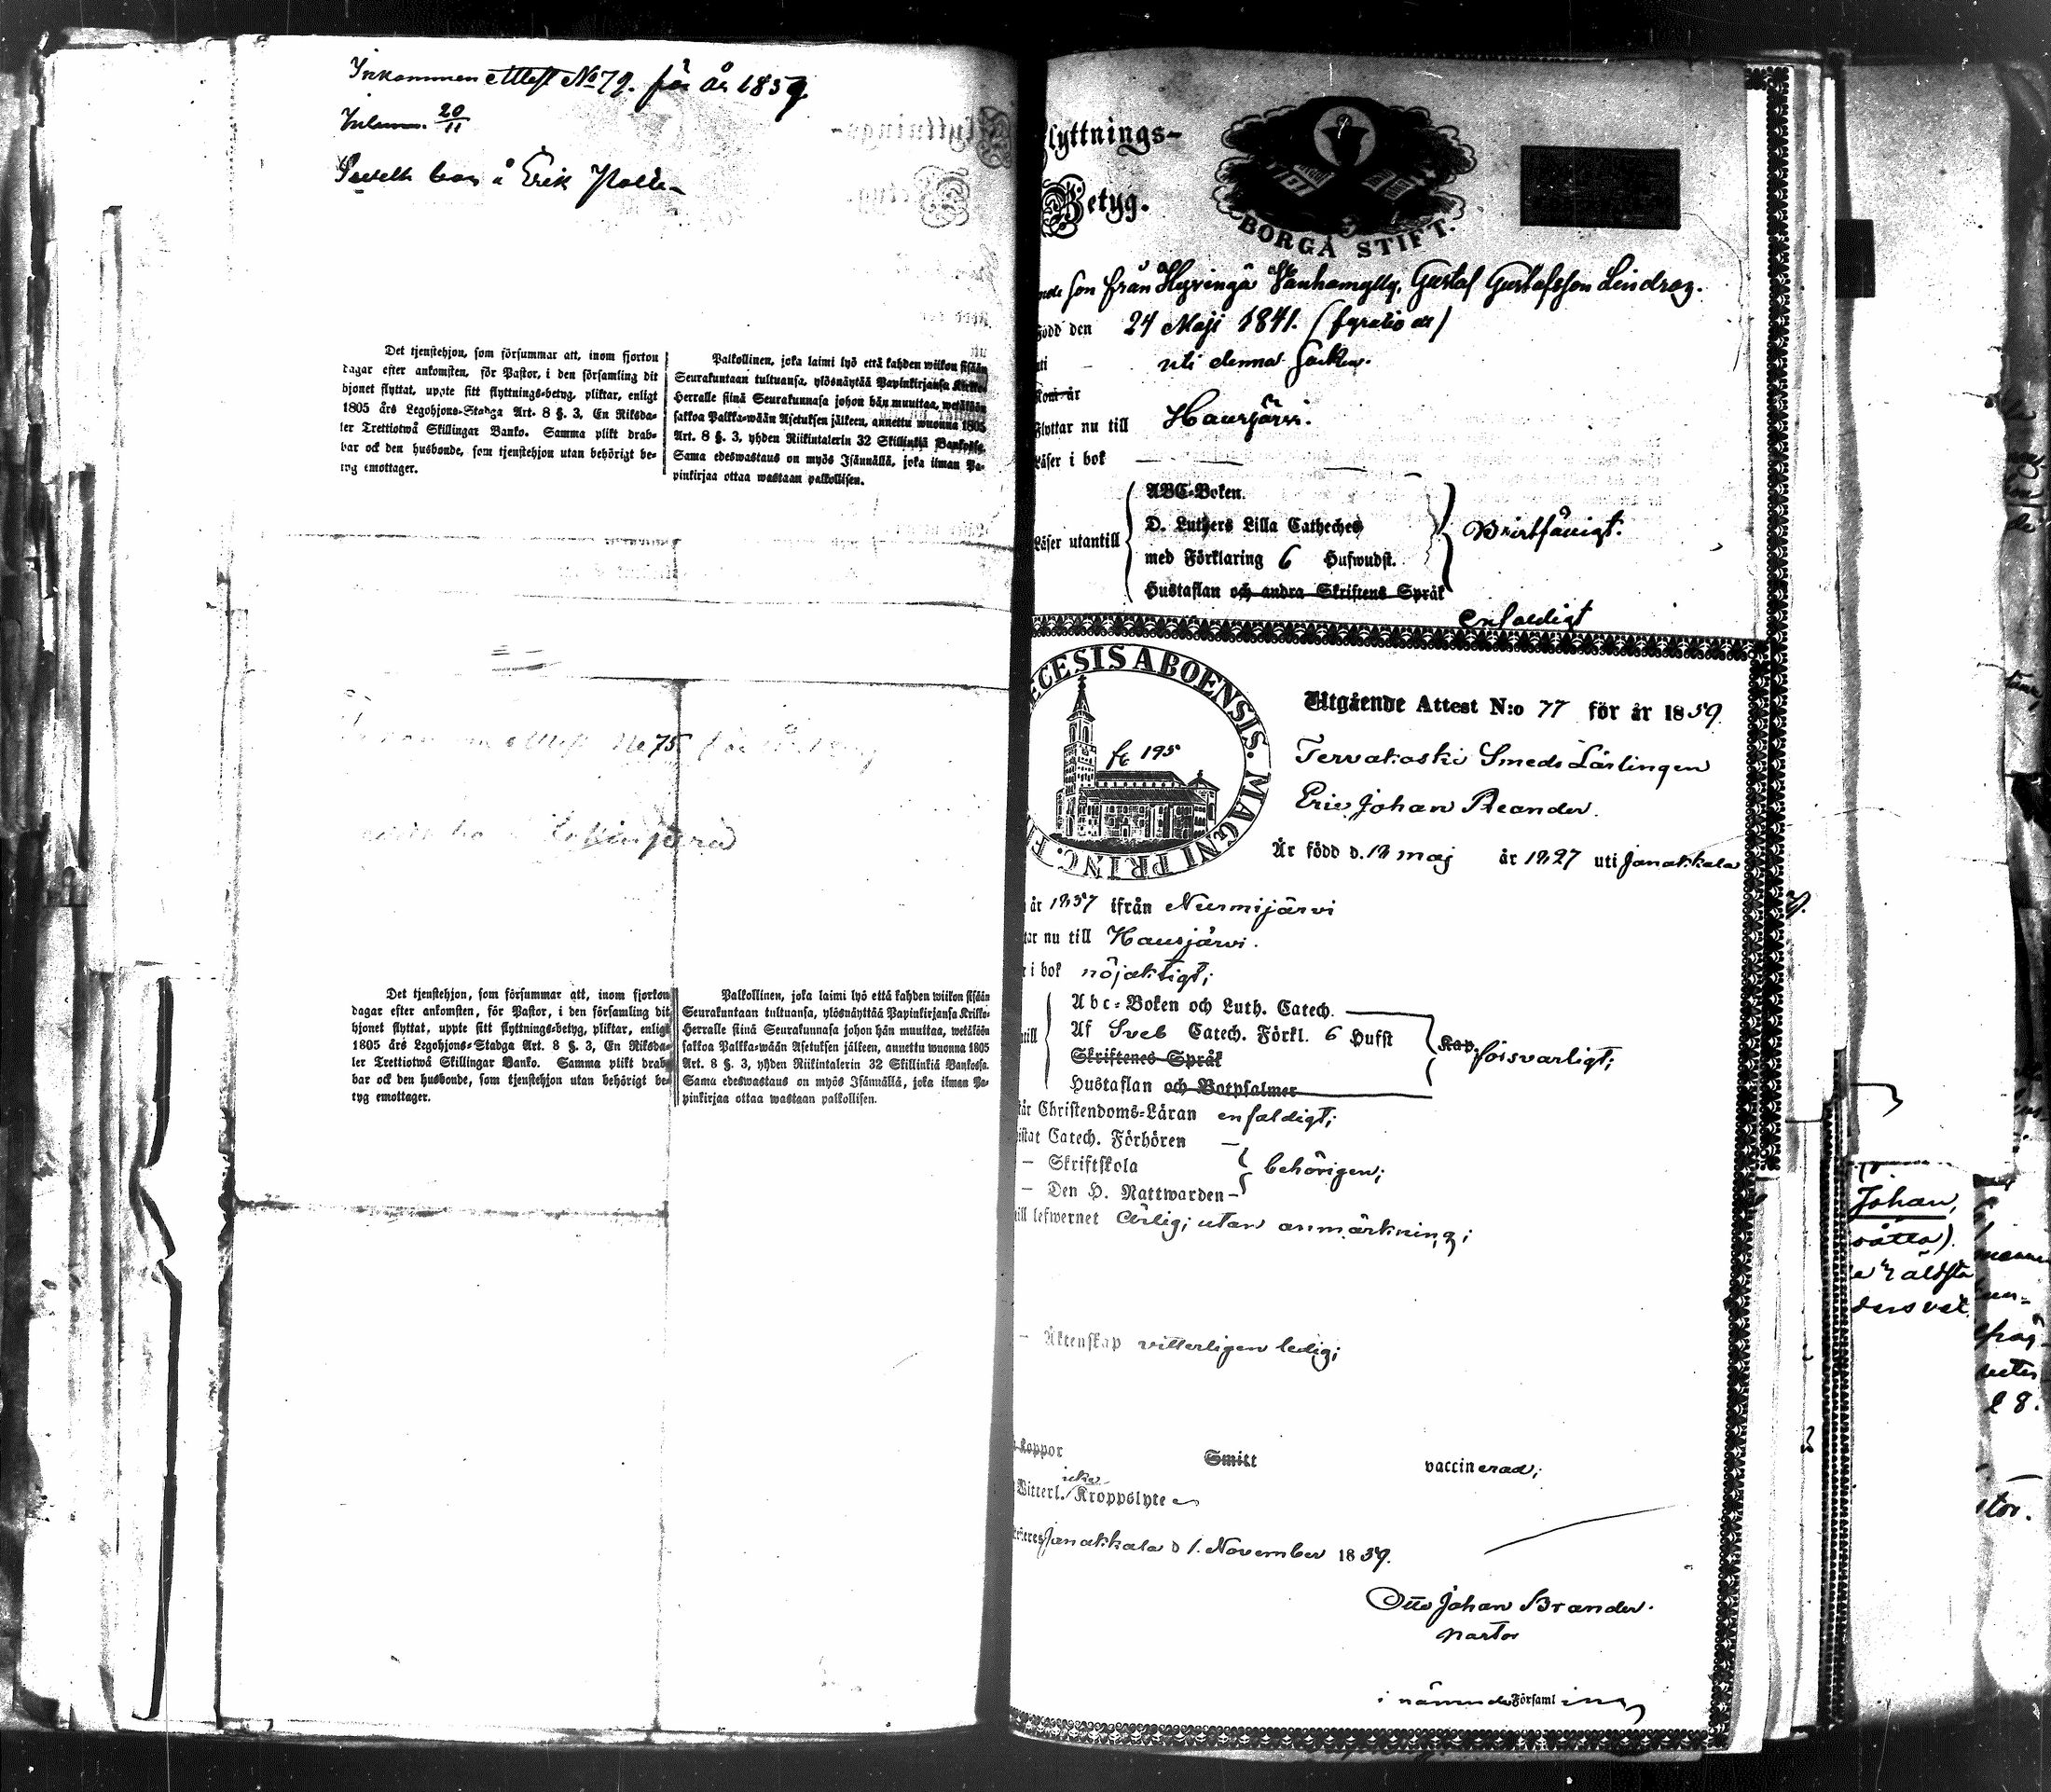 Inkommen Attest No 79. för år 1859
20/11
å Erik
Det tjenstehjon, som försummar att, inom fjorton
dagar efter ankomsten, för Pastor, i den församling dit
hjonet flyttat, uppte sitt flyttnings-betyg, pliktar, enligt
1805 års Legohjons-Stadga Art. 8 §. 3, En Riksda-
ler Trettiotwå Skillingar Banko. Samma plikt drab-
bar ock den husbonde, som tjenstehjon utan behörigt be-
tyg emottager.
Palkollinen, joka laimi lyö että kahden wiikon sisään
Seurakuntaan tultuansa, ylösnäytää Papinkirjansa Kirkko-
Herralle siinä Seurakunnasa johon hän muuttaa, wetäköön
sakkoa Palkka-wään Asetuksen jälkeen, annettu wuonna 1805
Art. 8 §. 3, yhden Riikintalerin 32 Skillinkiä Bankossa.
Sama edeswastaus on myös Isännällä, joka ilman Pa-
pinkirjaa ottaa wastaan palkollisen.
No 75
Det tjenstehjon, som försummar att, inom fjorton
dagar efter ankomsten, för Pastor, i den församling dit
hjonet flyttat, uppte sitt flyttnings-betyg, pliktar, enligt
1805 års Legohjons-Stadga Art. 8 §. 3, En Riksda-
ler Trettiotwå Skillingar Banko. Samma plikt drab-
bar ock den husbonde, som tjenstehjon utan behörigt be-
tyg emottager.
Palkollinen, joka laimi lyö että kahden wiikon sisään
Seurakuntaan tultuansa, ylösnäytää Papinkirjansa Kirkko-
Herralle siinä Seurakunnasa johon hän muuttaa, wetäköön
sakkoa Palkka-wään Asetuksen jälkeen, annettu wuonna 1805
Art. 8 §. 3, yhden Riikintalerin 32 Skillinkiä Bankossa.
Sama edeswastaus on myös Isännällä, joka ilman Pa-
pinkirjaa ottaa wastaan palkollisen.
Flyttnings-
Betyg.
BORGÅ STIFT.
son från Hyvingä Vanhamylly, Gustaf Gustafsson Lindroz.
Född den 24 Maji 1841. (fyratio et)
uti denna Socken.
Kom år
Flyttar nu till Hausjärvi.
Läser i bok
ABC-Boken.
D. Luthers Lilla Catheches
Läser utantill
med Förklaring 6 Hufwudst.
Hustaflan och andra Skriftens Språk
enfaldigt
ECESIS ABOENSIS. MAGNI PRINC. F
fc 195
Utgående Attest N:o 77 för år 1859.
Tervakoski Smeds Lärlingen
Eric Johan Reander.
Är född d. 18 maj år 1827 uti Janakkala
år 1857 ifrån Nurmijärvi
tar nu till Hausjärvi.
i bok nöjaktigt;
Abc-Boken och Luth. Catech.
Af Sveb Catech. Förkl. 6 Hufst
Skriftenes Språk
Hustaflan och Botpsalmer
försvarligt;
Christendoms-Läran enfaldigt;
Catech. Förhören
— Skriftskola
— Den H. Nattwarden —
behörigen;
till lefwernet ärlig; utan anmärkning;
— Äktenskap vitterligen ledig;
Koppor Smitt vaccinerad;
icke
Witterl. Kroppslyte
Janakkala d 1. November 1859.
Otto Johan Brander.
Pastor
i nämnde Församling
Johan,